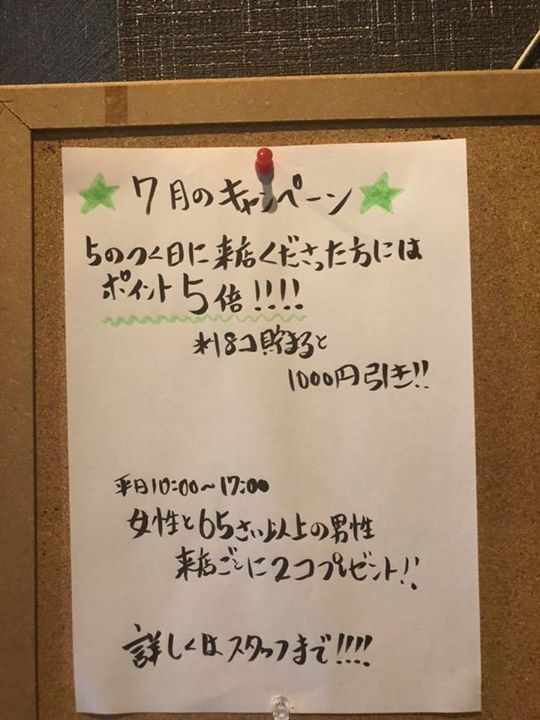 7月のキャンペーン
5のつく日に来店くださった方には
ポイント5倍!!!!
※18コ貯まると
1000円引き!!
平日10:00〜17:00
女性と65さい以上の男性
来店ごとに2コプレゼント!!
詳しくはスタッフまで!!!!